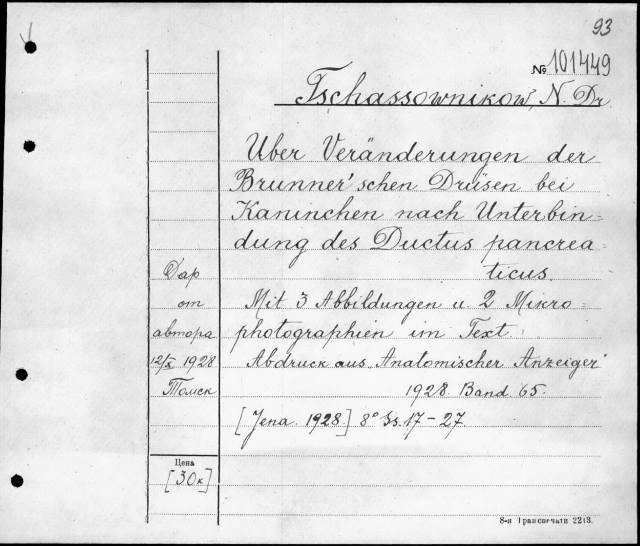 93
№ 101449
Tschassownikow, N. Dr.
Über Veränderungen der
Brunner'schen Drüsen bei
Kaninchen nach Unterbin=
dung des Ductus pancrea=
ticus.
Mit 3 Abbildungen u 2 Mikro=
photographien im Text.
Abdruck aus „Anatomischer Anzeiger“
1928. Band 65.
[Jena. 1928.] 8° Ss. 17-27.
Дар
от
автора
12/X 1928
Томск
Цена
[30к]
8-я Транспечати 2213.